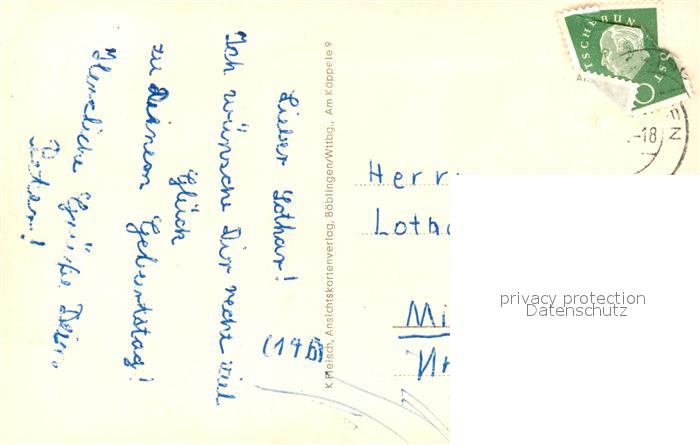 Lieber Lothar!
Ich wünsche Dir recht viel
Glück
zu Deinem Geburtstag!
Herzliche Grüße Dein
Peter!
K. Pleisch, Ansichtskartenverlag, Böblingen/Wttbg., Am Käppele 9
TSCHE BUN
OST
-18
Herr
Loth
Mi
privacy protection
Datenschutz